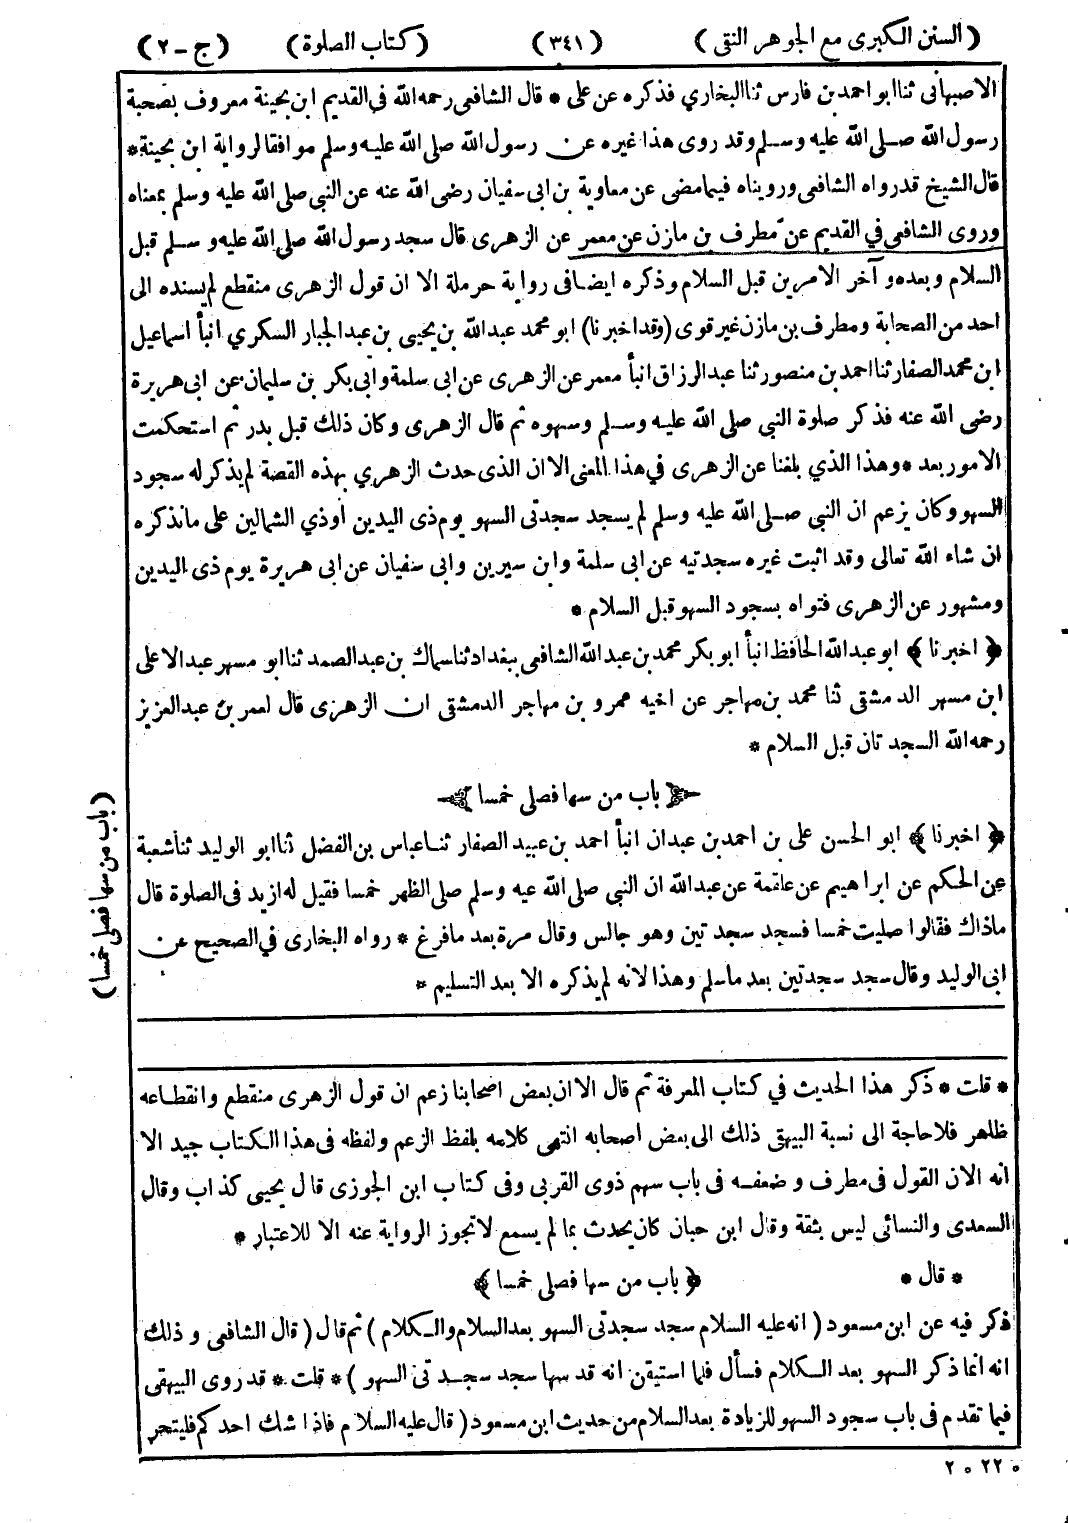 (السنن الكبرى مع الجوهر النقى) (٣٤١) (كتاب الصلوة) (ج - ٢)
الاصبهانى ثنا ابو احمد بن فارس ثنا البخاري فذكره عن على * قال الشافعى رحمه الله في القديم ابن بحينة معروف بصحبة
رسول الله صلى الله عليه وسلم وقد روى هذا غيره عن رسول الله صلى الله عليه وسلم موافقا لرواية ابن بحينة *
قال الشيخ قد رواه الشافعى ورويناه فيما مضى عن معاوية بن ابى سفيان رضى الله عنه عن النبى صلى الله عليه وسلم بمعناه
وروى الشافعى في القديم عن مطرف بن مازن عن معمر عن الزهرى قال سجد رسول الله صلى الله عليه وسلم قبل
السلام وبعده وآخر الامرين قبل السلام وذكره ايضا فى رواية حرملة الا ان قول الزهرى منقطع لم يسنده الى
احد من الصحابة ومطرف بن مازن غير قوى (وقد اخبرنا) ابو محمد عبدالله بن يحيى بن عبد الجبار السكري انبأ اسماعيل
ابن محمد الصفار ثنا احمد بن منصور ثنا عبد الرزاق انبأ معمر عن الزهرى عن ابى سلمة وابى بكر بن سليمان عن ابى هريرة
رضى الله عنه فذكر صلوة النبى صلى الله عليه وسلم وسهوه ثم قال الزهرى وكان ذلك قبل بدر ثم استحكمت
الامور بعد * وهذا الذي بلغنا عن الزهرى في هذا المعنى الا ان الذى حدث الزهري بهذه القصة لم يذكر له سجود
السهو وكان يزعم ان النبى صلى الله عليه وسلم لم يسجد سجدتى السهو يوم ذى اليدين أو ذي الشمالين على ما نذكره
ان شاء الله تعالى وقد اثبت غيره سجدتيه عن ابى سلمة وابن سيرين وابى سفيان عن ابى هريرة يوم ذى اليدين
ومشهور عن الزهرى فتواه بسجود السهو قبل السلام *
﴿اخبرنا﴾ ابو عبدالله الحافظ انبأ ابو بكر محمد بن عبدالله الشافعى ببغداد ثنا سماك بن عبد الصمد ثنا ابو مسهر عبد الاعلى
ابن مسهر الدمشقى ثنا محمد بن مهاجر عن اخيه عمرو بن مهاجر الدمشقى ان الزهرى قال لعمر بن عبد العزيز
رحمه الله السجدتان قبل السلام *
﴿باب من سها فصلى خمسا﴾
﴿اخبرنا﴾ ابو الحسن على بن احمد بن عبدان انبأ احمد بن عبيد الصفار ثنا عباس بن الفضل ثنا ابو الوليد ثنا شعبة
عن الحكم عن ابراهيم عن علقمة عن عبدالله ان النبى صلى الله عيه وسلم صلى الظهر خمسا فقيل له ازيد فى الصلوة قال
ماذاك فقالوا صليت خمسا فسجد سجدتين وهو جالس وقال مرة بعد مافرغ * رواه البخارى في الصحيح عن
ابى الوليد وقال سجد سجدتين بعد ماسلم وهذا لانه لم يذكره الا بعد التسليم *
(باب من سها فصلى خمسا)
* قلت * ذكر هذا الحديث في كتاب المعرفة ثم قال الا ان بعض اصحابنا زعم ان قول الزهرى منقطع وانقطاعه
ظاهر فلا حاجة الى نسبة البيهقى ذلك الى بعض اصحابه انتهى كلامه بلفظ الزعم ولفظه فى هذا الكتاب جيد الا
انه الان القول فى مطرف وضعفه فى باب سهم ذوى القربى وفى كتاب ابن الجوزى قال يحيى كذاب وقال
السعدى والنسائى ليس بثقة وقال ابن حبان كان يحدث بما لم يسمع لا تجوز الرواية عنه الا للاعتبار *
* قال * ﴿باب من سها فصلى خمسا﴾
ذكر فيه عن ابن مسعود (انه عليه السلام سجد سجدتى السهو بعد السلام والكلام) ثم قال (قال الشافعى وذلك
انه انما ذكر السهو بعد الكلام فسأل فلما استيقن انه قد سها سجد سجدتى السهو) * قلت * قد روى البيهقى
فيما تقدم فى باب سجود السهو للزيادة بعد السلام من حديث ابن مسعود (قال عليه السلام فاذا شك احدكم فليتحر